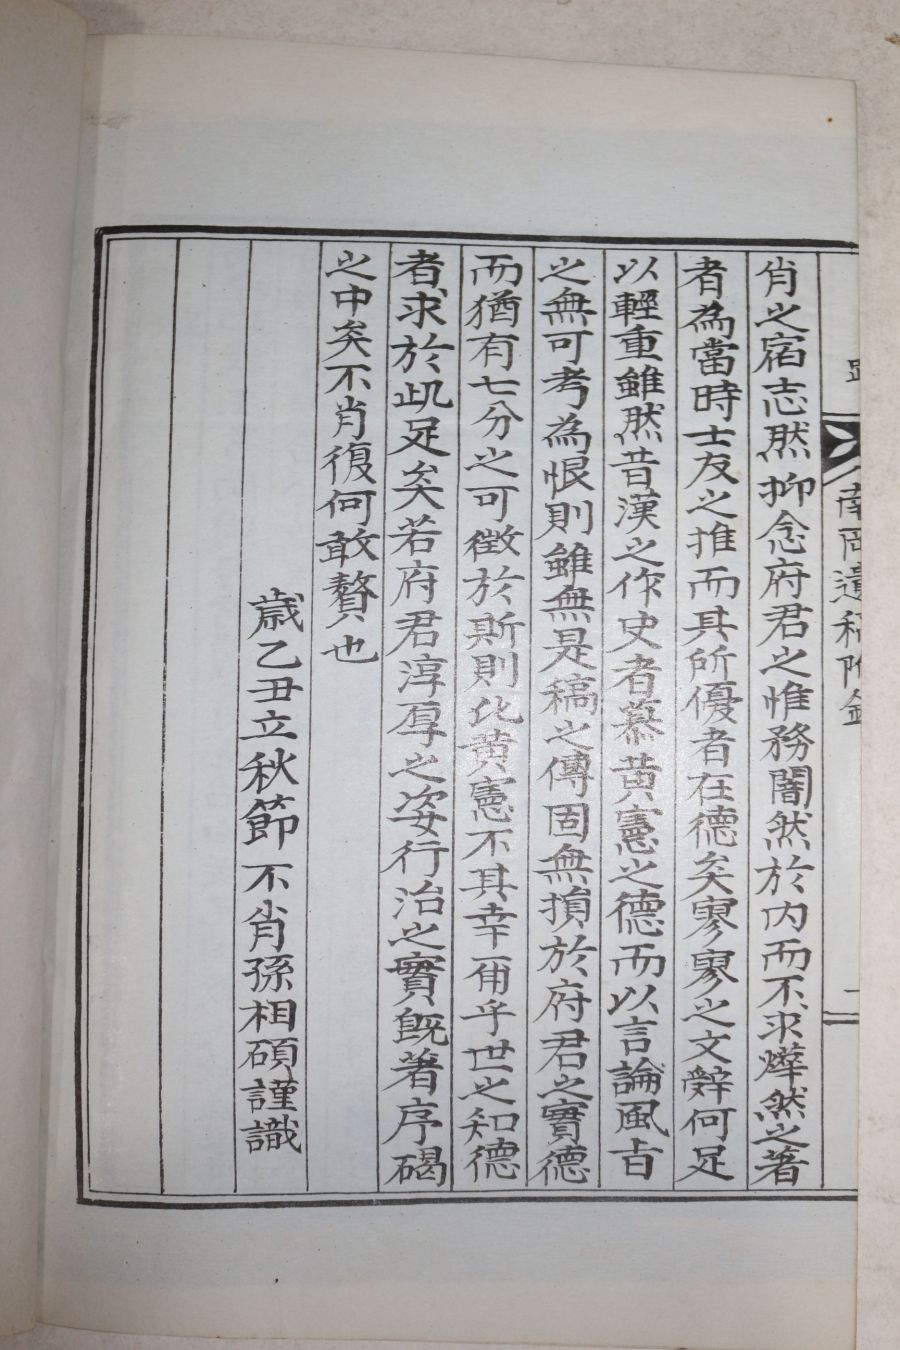 南岡遺稿附錄
肖之宿志然抑念府君之惟務闇然於內而不求燁然之著
者為當時士友之推而其所優者在德矣寥寥之文辭何足
以輕重雖然昔漢之作史者慕黃憲之德而以言論風旨
之無可考為恨則雖無是稿之傳固無損於府君之實德
而猶有七分之可徵於斯則比黃憲不其幸甭乎世之知德
者求於此足矣若府君淳厚之姿行治之實旣著序碣
之中矣不肖復何敢贅也
歲乙丑立秋節不肖孫相碩謹識